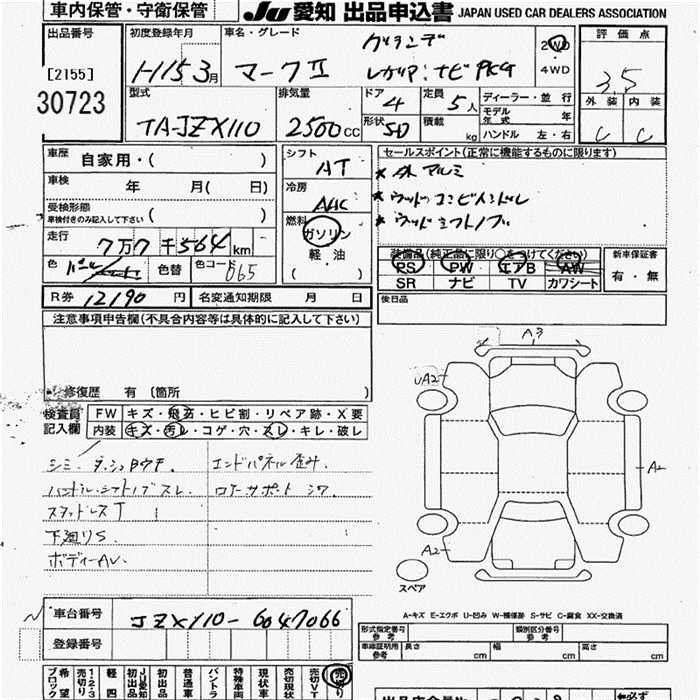 車内保管・守衛保管 JU 愛知 出品申込書 JAPAN USED CAR DEALERS ASSOCIATION
出品番号 初度登録年月 車名・グレード グランデ 2WD 評価点
[2155] H15 3月 マークⅡ レガリア:ナビPKG 4WD 3,5
30723 型式 排気量 ドア 4 定員 5人 ディーラー・並 行 外装 内装
TA-JZX110 2500cc 形状 SD 積載 kg モデル年式 年 C C
ハンドル 左・右
車歴 自家用・( ) シフト AT セールスポイント(正常に機能するものに限ります)
車検 年 月( 日) 冷房 AAC ★ 外 アルミ
受検形態 ★ ウッドコンビハンドル
車検付きのみ記入して下さい ( ) 燃料 ガソリン ★ ウッドシフトノブ
走行 7万7千564km 軽油
色 パール 色替 色コード 065 ( )
装備品(純正品に限り○をつけてください) 新車保証書
PS PW エアB AW 有・無
SR ナビ TV カワシート
R券 12190円 名変通知期限 月 日 後日品
注意事項申告欄(不具合内容等は具体的に記入して下さい)
A3
UA2
修復歴 有 〔箇所 〕
検査員 FW キズ・飛石・ヒビ割・リペア跡・X要
記入欄 内装 キズ・汚レ・コゲ・穴・スレ・キレ・破レ
シミ. ダッシュ エンドパネル歪み. A2
ハンドル・シフトノブスレ. ロアーサポート シワ
スタッドレスT
下廻りS A2
ボディーAU.
スペア
A-キズ E-エクボ U-凹み W-補修跡 S-サビ C-腐食 XX-交換済
車台番号 JZX110-6047066
登録番号
型式指定番号 参考 類別区分番号 参考
車庫証明用 参考 長さ cm 幅 cm 高さ cm
希望ブロック 売切り 1・2・3 軽四 初出品 JU愛知 初出品 普通車 バントラ 特殊車両 現状車 売切現状 売切VT 売切り
出品店会員No.